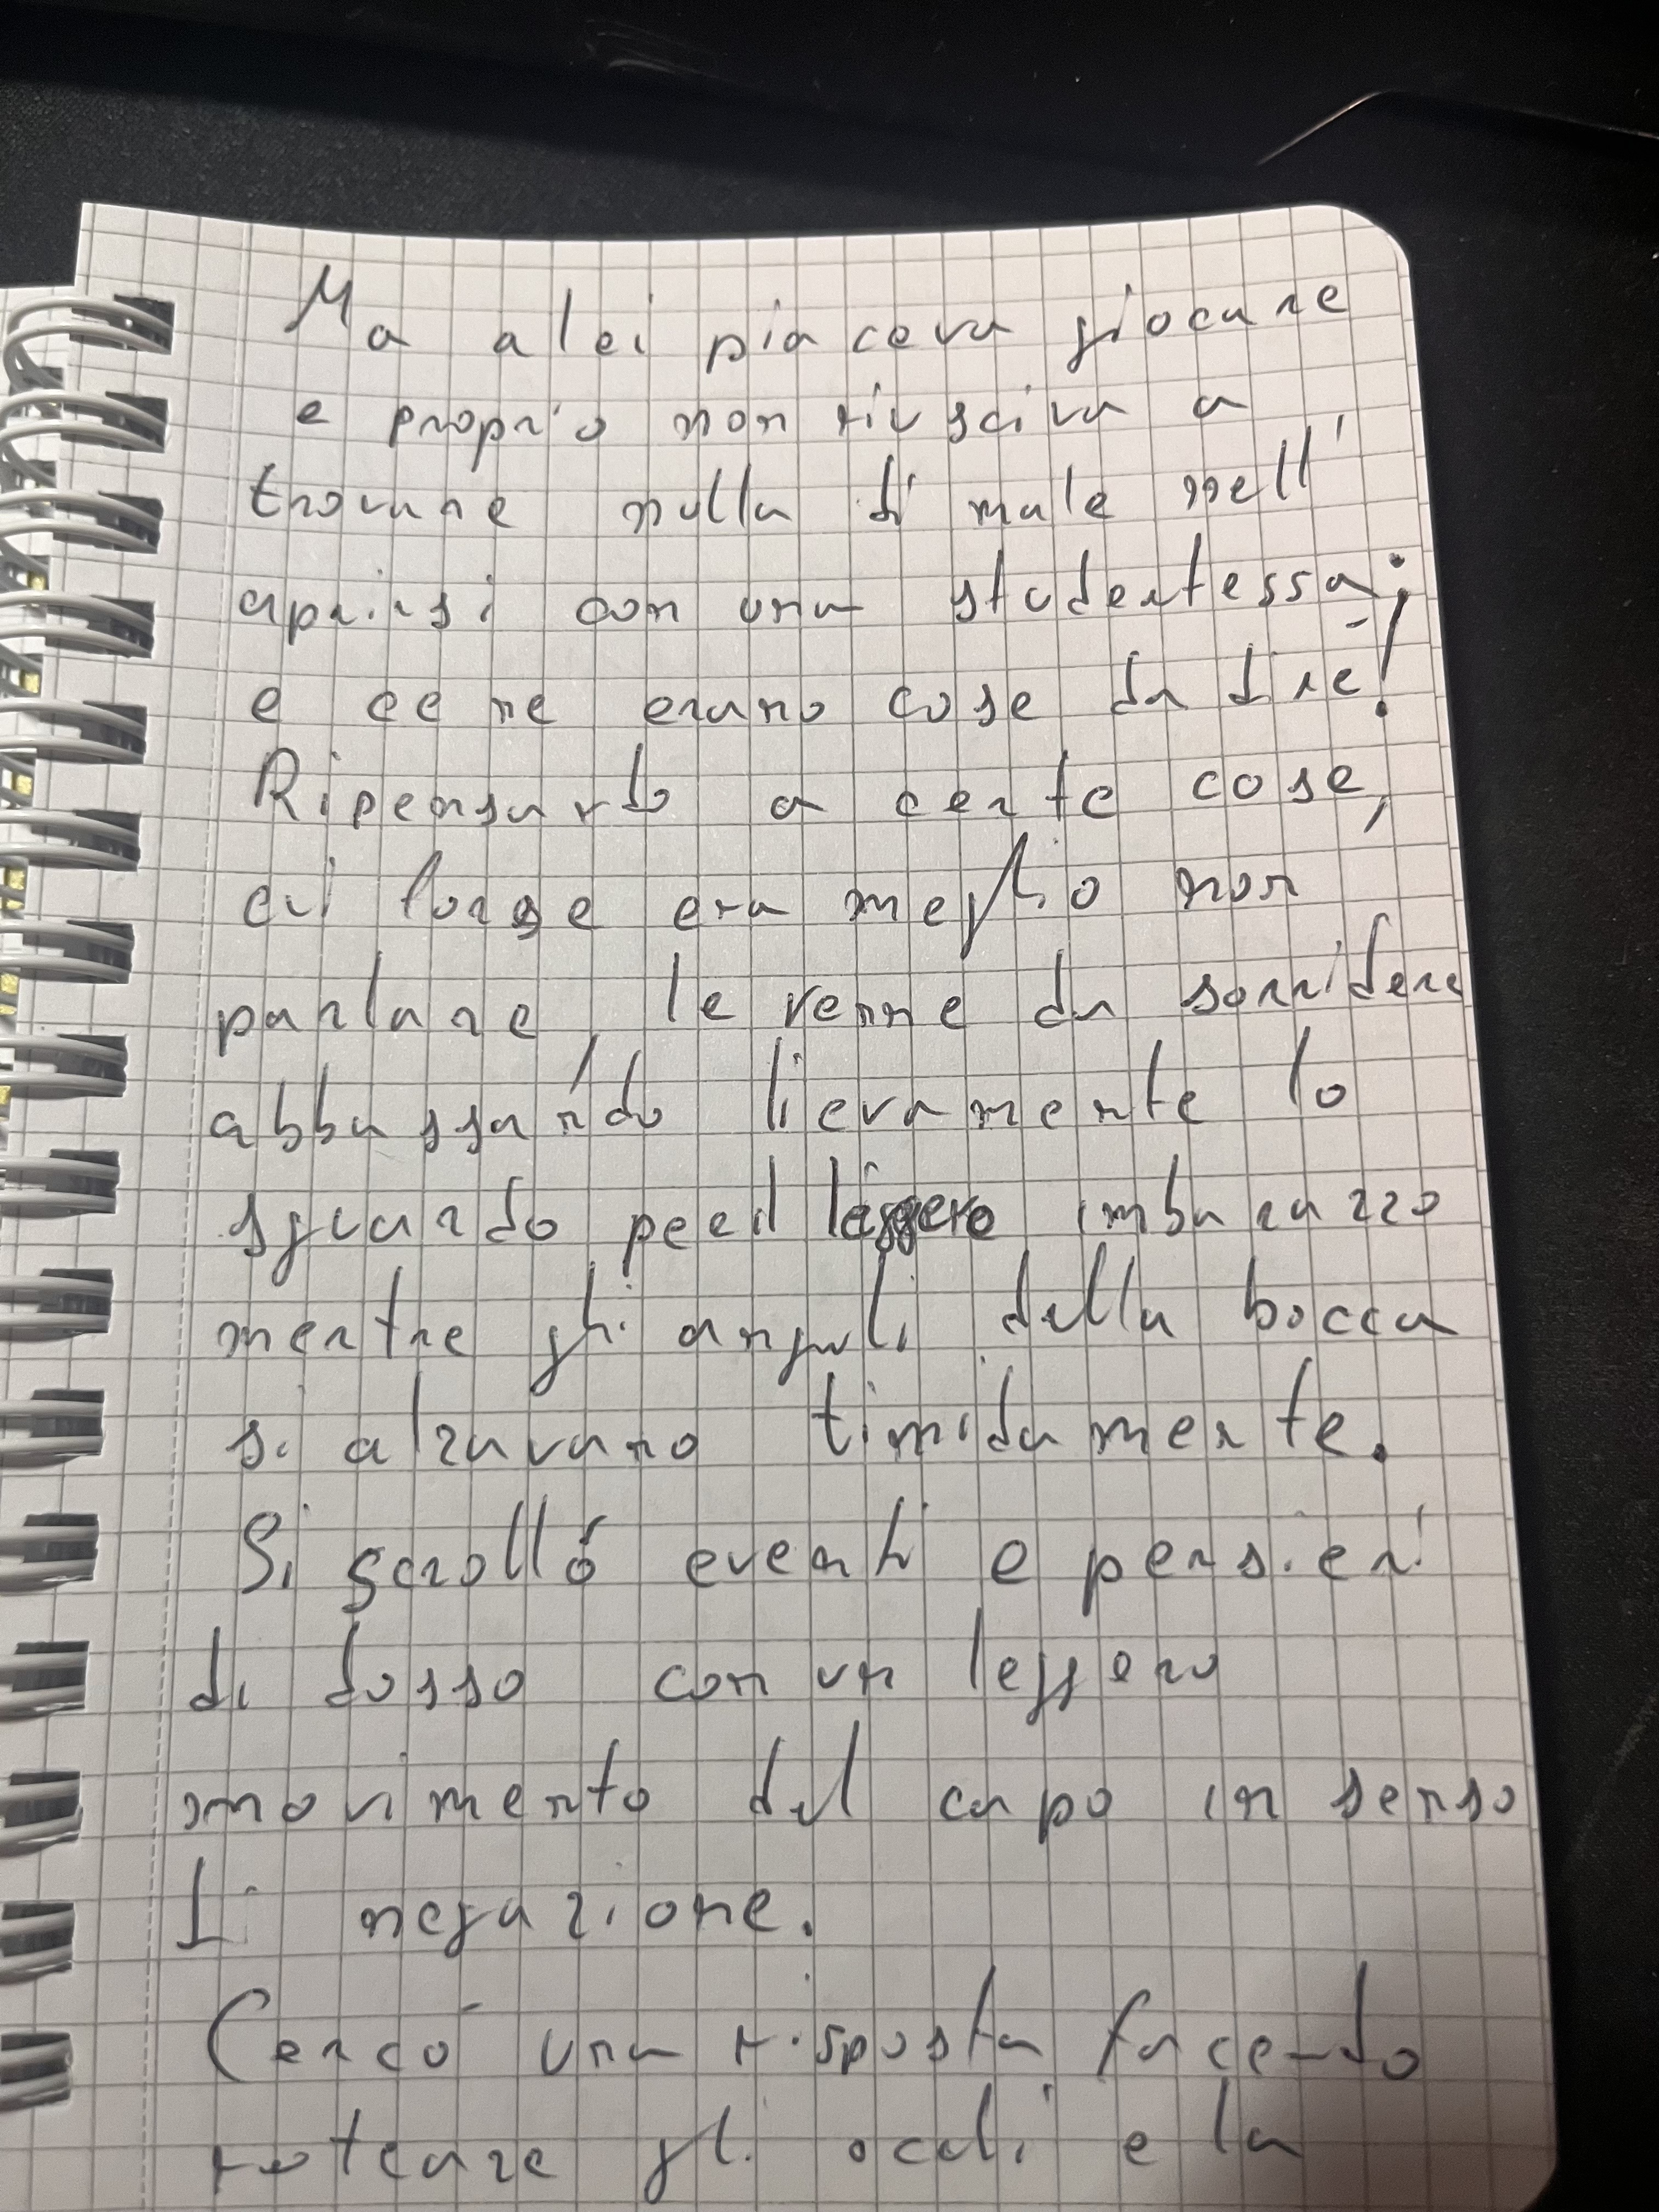 Ma a lei piaceva giocare
e proprio non riusciva a
trovare nulla di male nell'
aprirsi con una studentessa;
e ce ne erano cose da dire!
Ripensando a certe cose,
cui forse era meglio non
parlare, le venne da sorridere
abbassando lievamente lo
sguardo peril leggero imbarazzo
mentre gli angoli della bocca
si alzavano timidamente.
Si scrollò eventi e pensieri
di dosso con un leggero
movimento del capo in senso
di negazione.
Cercò una risposta facendo
roteare gli occhi e la